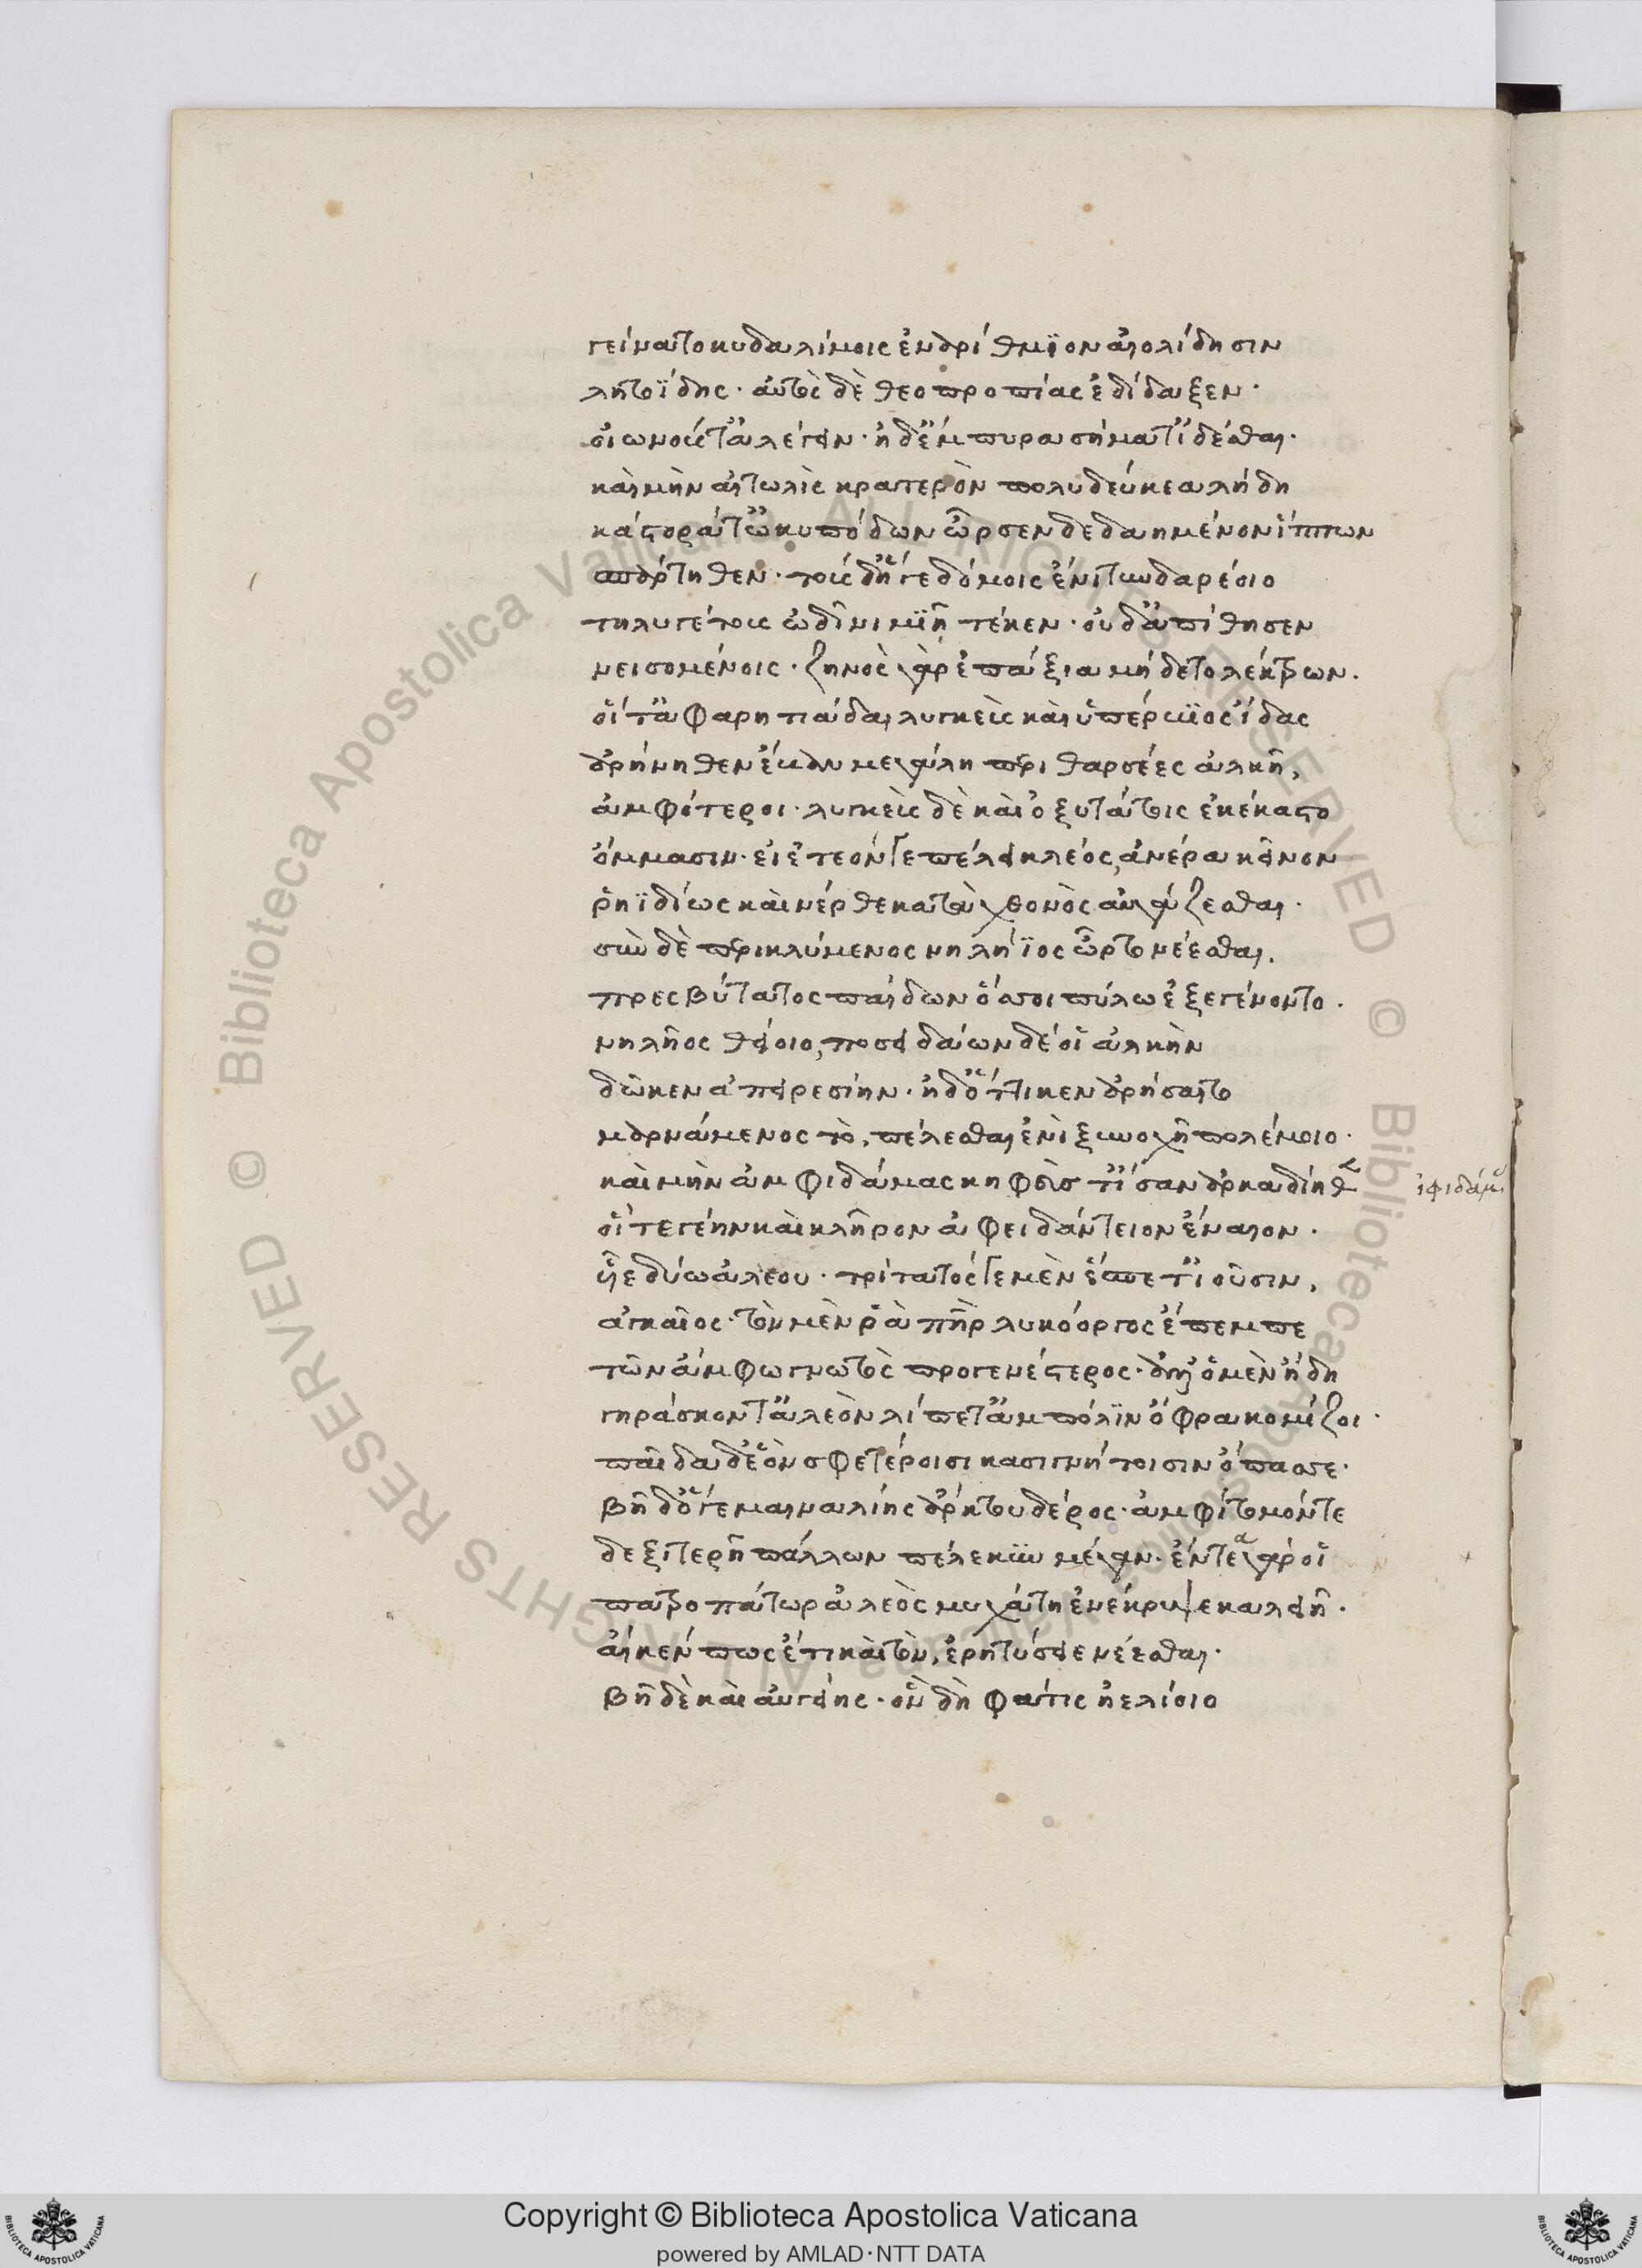 γείνατο κυδαλίμοις ἐναρίθμϊον αἰολίδησιν
λητοΐδης· αὐτὸς δὲ θεοπροπίας ἐδίδαξεν·
οἰωνούς τ' ἀλέγειν· ἠδ' ἔμπυρα σήματ' ἰδέσθαι·
καὶ μὴν αἰτωλὶς κρατερὸν πολυδεύκεα λήδη
κάστορά τ' ὠκυπόδων ὦρσεν δεδαημένον ἵππων
σπάρτηθεν· τοὺς δ' ἥγε δόμοις ἔνι τυνδαρέοιο
τηλυγέτους ὠδῖνι μϊῇ τέκεν· οὐδ' ἀπίθησεν
νεισομένοις· ζηνὸς γὰρ ἐπάξια μήδετο λέκτρων.
οἵ τ' ἀφαρητιάδαι λυγκεὺς καὶ ὑπέρβϊος ἴδας
ἀρήνηθεν ἔβαν μεγάλη περιθαρσέες ἀλκῆ,
ἀμφότεροι· λυγκεὺς δὲ καὶ ὀξυτάτοις ἐκέκαστο
ὄμμασιν· εἰ ἐτεόν γε πέλει κλέος, ἀνέρα κεῖνον
ῥηϊδίως καὶ νέρθε κατὰ χθονὸς αὐγάζεσθαι·
σὺν δὲ περικλύμενος νηλήϊος ὦρτο νέεσθαι.
πρεσβύτατος παίδων ὅσσοι πύλω ἐξεγένοντο.
νηλῆος θείοιο, ποσειδάων δέ οἱ ἀλκὴν
δῶκεν ἀπειρεσίην· ἠδ' ὅττι κεν ἀρήσαιτο
μαρνάμενος τὸ, πέλεσθαι ἐνὶ ξυνοχῇ πολέμοιο·
καὶ μὴν ἀμφιδάμας κηφεύς τ' ἴσαν ἀρκαδίηθεν ἰφιδάμας
οἳ τεγέην καὶ κλῆρον ἀφειδάντειον ἔναιον.
υἷε δύω ἀλεοῦ· τρίτατός γε μὲν ἕσπετ' ἰοῦσιν,
ἀγκαῖος· τὸν μὲν ῥὰ πὴρ λυκόοργος ἔπεμπε
τῶν ἄμφω γνωτὸς προγενέστερος· ἀλλ' ὁ μὲν ἤδη
γηράσκοντ' ἀλεὸν λίπετ' ἂμ πόλϊν ὄφρα κομίζοι·
παῖδα δ' ἑὸν σφετέροισι κασιγνήτοισιν ὄπασσε·
βῆ δ' ὅγε μαιναλίης ἄρκτου δέρος· ἀμφίτομόν τε
δεξιτερῇ πάλλων πέλεκϋν μέγαν· ἔντεα γάρ οἱ
πατροπάτωρ ἀλεὸς μυχάτη ἐνέκρυψε καλειῇ·
αἴκεν πως ἔτι καὶ τὸν, ἐρητύσειε νέεσθαι·
βῆ δὲ καὶ αὐγείης· ὃν δὴ φάτις ἠελίοιο
© Biblioteca Apostolica Vaticana ALL RIGHTS RESERVED
© Biblioteca Apostolica Vaticana ALL RIGHTS RESERVED
Copyright © Biblioteca Apostolica Vaticana
powered by AMLAD·NTT DATA
BIBLIOTECA APOSTOLICA VATICANA
BIBLIOTECA APOSTOLICA VATICANA